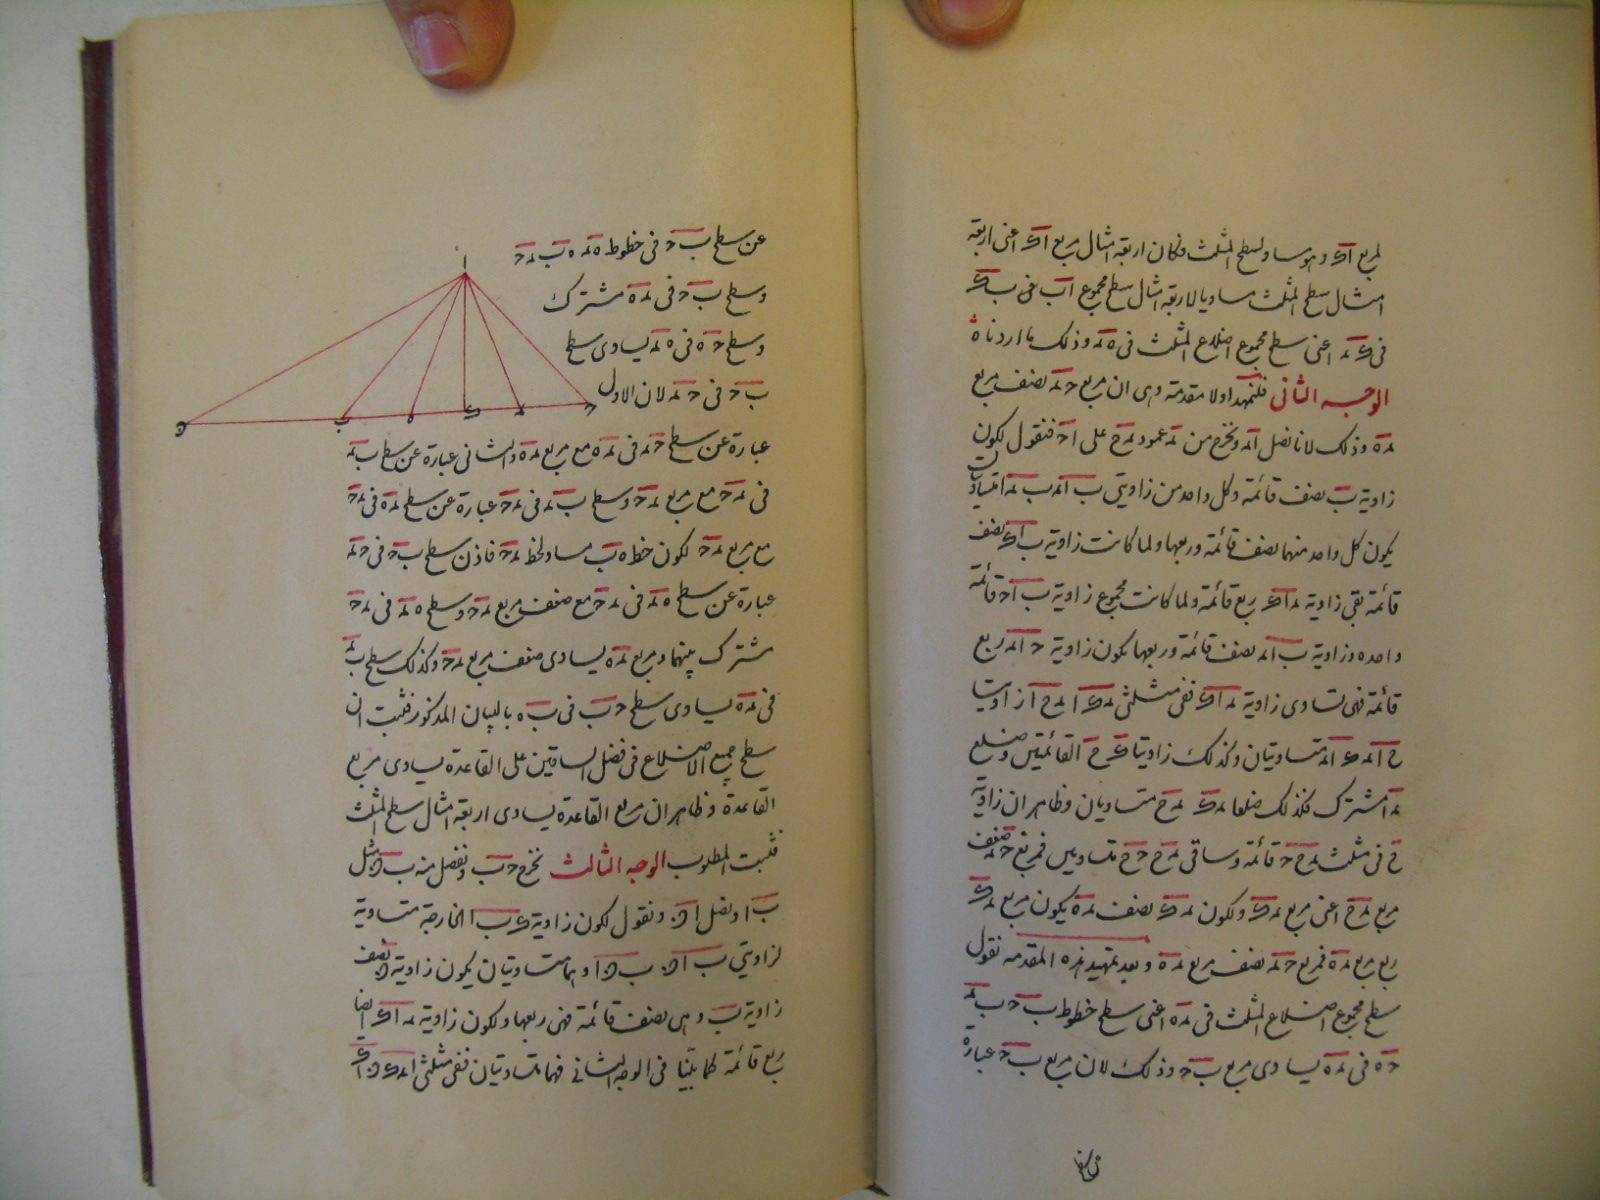 لمربع اک وهو مساو لسطح المثلث فكان اربعة امثال مربع اک اعنى اربعة
امثال سطح المثلث مساويا لاربعة امثال سطح مجموع اب فى ب ک
فى ک مـ اعنى سطح مجموع اضلاع المثلث فى ه مـ وذلك ما اردناه
الوجه الثانى فلنمهد اولا مقدمة وهى ان مربع ح مـ نصف مربع
مـ ه وذلك لانا نصل ا مـ ونخرج من مـ عمود مـ ح على ا ح فنقول لكون
زاوية ب نصف قائمة وكل واحد من زاويتى ب ا مـ ب مـ ا متساويتان
يكون كل واحد منهما نصف قائمة وربعها ولما كانت زاوية ب ا ک نصف
قائمة تبقى زاوية مـ ا ک ربع قائمة ولما كانت مجموع زاوية ب ا ح قائمة
واحده وزاوية ب ا مـ نصف قائمة وربعها يكون زاوية ح ا مـ ربع
قائمة فهى تساوى زاوية مـ ا ک ففى مثلثى مـ ک ا مـ ح ا زاويتا
ح ا مـ ک ا مـ متساويتان وكذلك زاويتا ک ح القائمتين وضلع
مـ ا مشترك فكذلك ضلعا مـ ک مـ ح متساويان وظاهر ان زاوية
ح فى مثلث مـ ح ح قائمة وساقى مـ ح ح ح متساويين فمربع ح مـ ضعف
مربع مـ ح اعنى مربع مـ ک ولكون مـ ک نصف مـ ه يكون مربع مـ ک
ربع مربع مـ ه فمربع ح مـ نصف مربع مـ ه وبعد تمهيد هذه المقدمه نقول
سطح مجموع اضلاع المثلث فى مـ ه اعنى سطح خطوط ب ح ب مـ
ح ه فى مـ ه يساوى مربع ب ح وذلك لان مربع ب ح عبارة
عن سطح ب ح فى خطوط ه مـ ه ب مـ ح
وسطح ب ح فى مـ ه مشترك
وسطح ح ه فى ه مـ يساوى سطح
ب ح فى ح مـ لان الاول
عبارة عن سطح ح مـ فى مـ ه مع مربع مـ ه والثانى عبارة عن سطح ب مـ
فى مـ ح مع مربع مـ ح وسطح ب مـ فى مـ ح عبارة عن سطح مـ ه فى مـ ح
مع مربع مـ ح لكون خط ه ب مساو لخط مـ ح فاذن سطح ب ح فى ح مـ
عبارة عن سطح ه مـ فى مـ ح مع ضعف مربع مـ ح وسطح ه مـ فى مـ ح
مشترك بينهما ومربع مـ ه يساوى ضعف مربع مـ ح وكذلك سطح ب مـ
فى مـ ه يساوى سطح ح ب فى ب ه بالبيان المذكور فثبت ان
سطح جميع الاضلاع فى فضل الساقين على القاعدة يساوى مربع
القاعدة وظاهر ان مربع القاعدة يساوى اربعة امثال سطح المثلث
فثبت المطلوب الوجه الثالث نخرج ح ب ونفصل منه ب د مثل
ب ا ونصل ا د ونقول لكون زاوية ک ب ا الخارجة متساوية
لزاويتى ب ا د ب د ا وهما متساويتان يكون زاوية د نصف
زاوية ب وهى نصف قائمة فهى ربعها ولكون زاوية مـ ا ک ايضا
ربع قائمة كما بينا فى الوجه الثانى فهما متساويتان ففى مثلثى ا مـ ک د ا ک